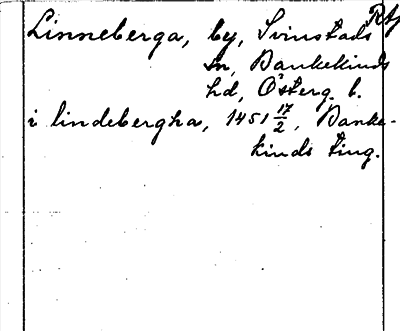 Linneberga, by, Svinstads
sn, Bankekinds
hd, Österg. l.
i lindebergha, 1451 17/2, Banke-
kinds ting.